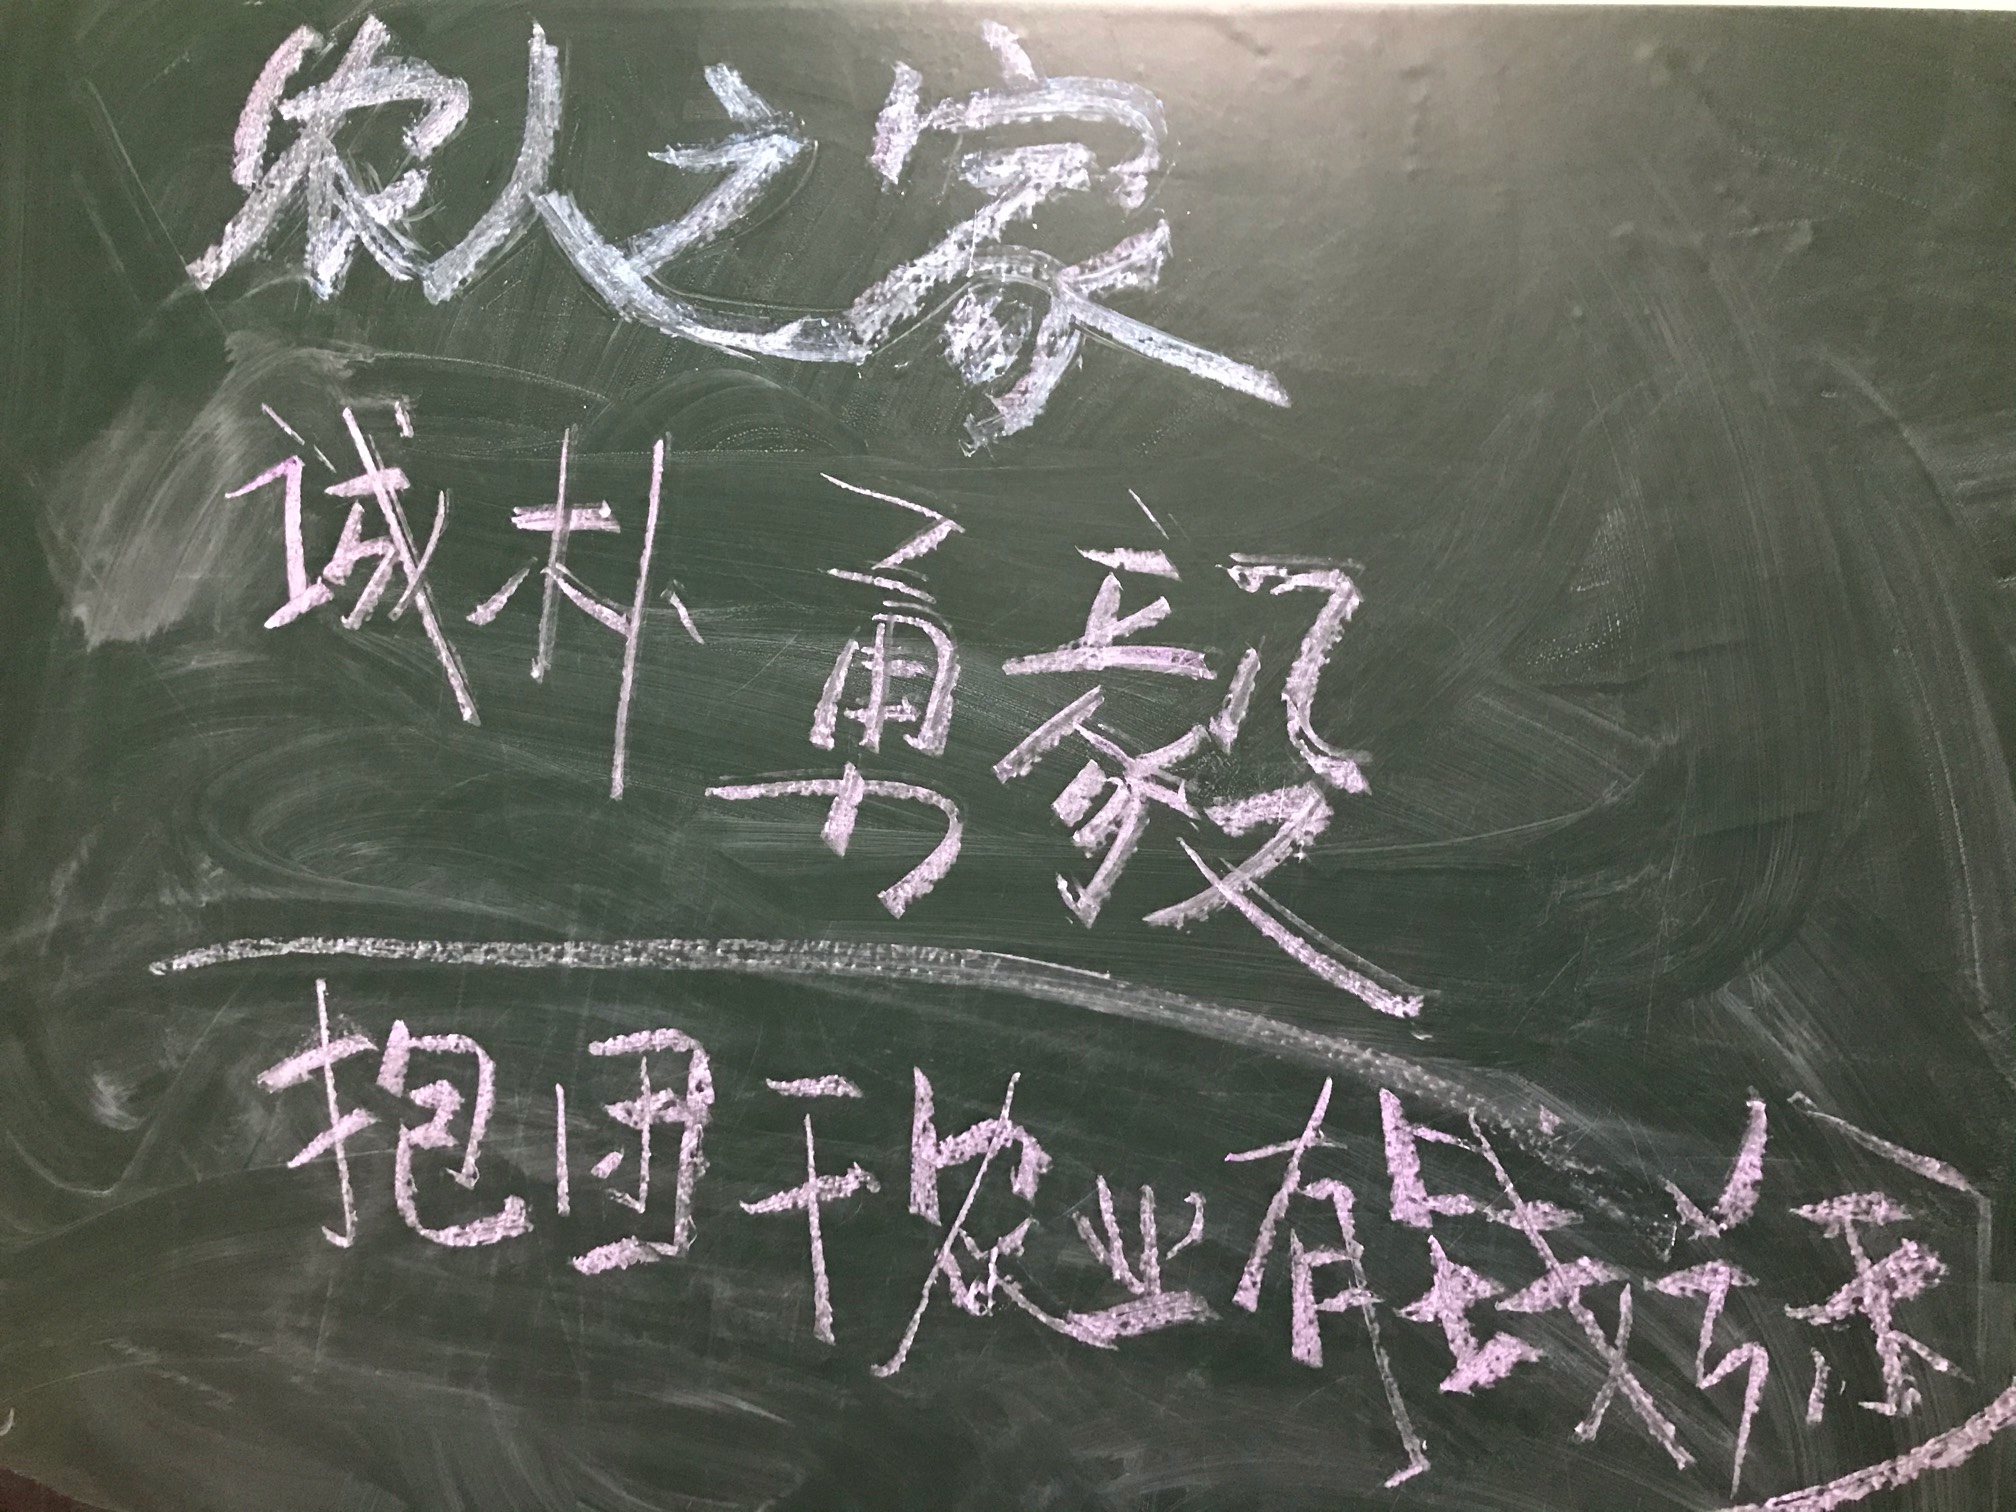 农人之家
诚朴勇毅
抱团干农业有钱途